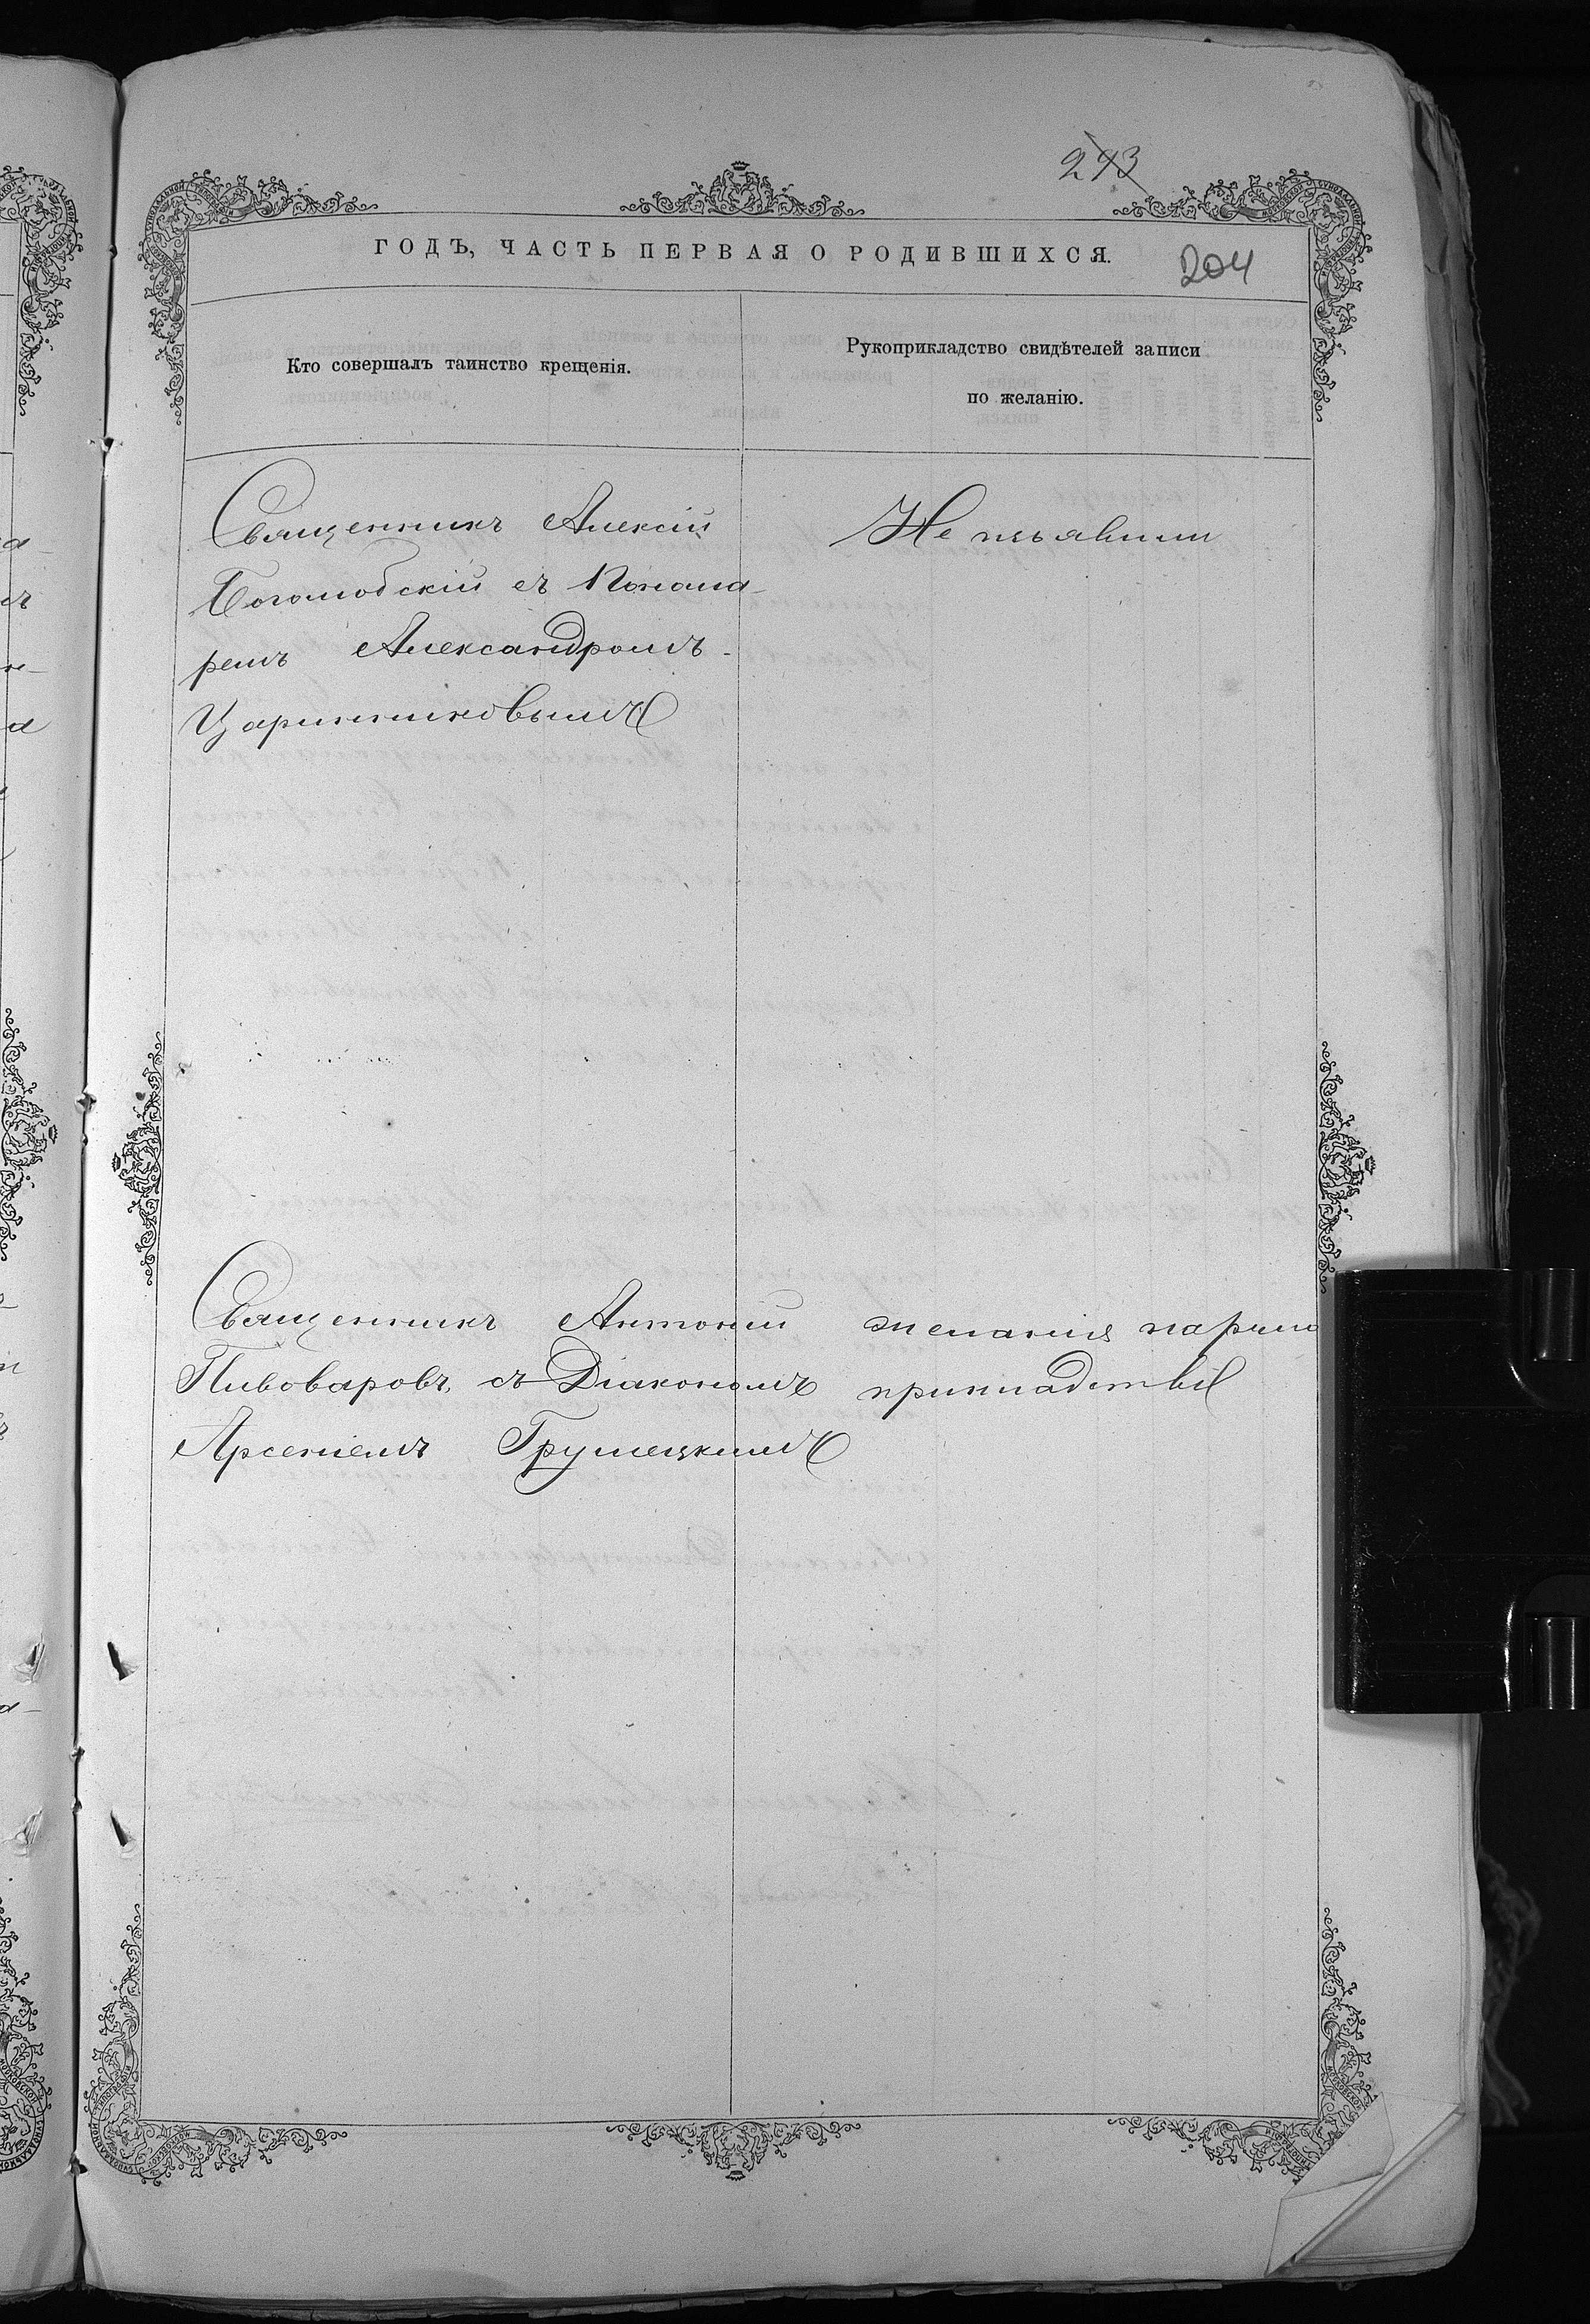 293
ГОДЪ, ЧАСТЬ ПЕРВАЯ О РОДИВШИХСЯ.
204
Кто совершалъ таинство крещенія.
Рукоприкладство свидѣтелей записи
по желанію.
Священникъ Алексій
Боголюбскій съ Понома-
ремъ Александромъ
Царинниковымъ
Не изъявили
Священникъ Антоній
Пивоваровъ съ Діакономъ
Арсеніемъ Грушецкимъ
желанія на руко
прикладствѣ